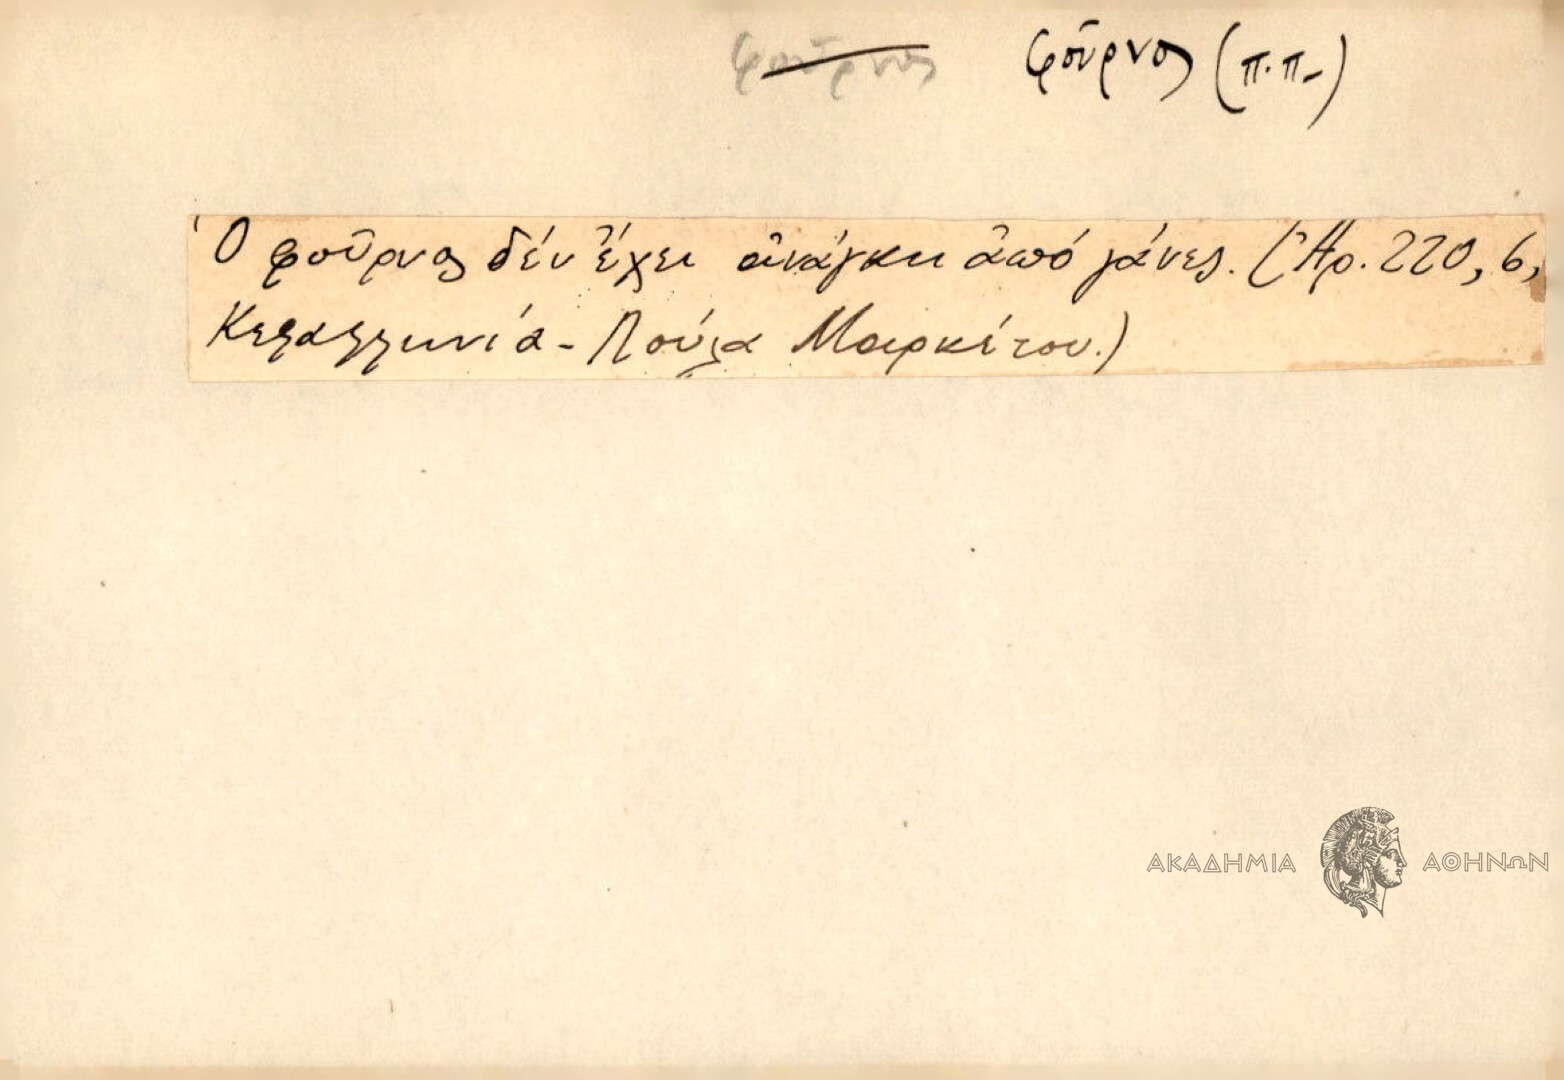 φοῦρνος φοῦρνος (π.π-)
Ὁ φοῦρνος δέν ἔχει ἀνάγκη ἀπό γάνες. (Ἀρ. 220, 6,
Κεφαλληνιά - Λούλα Μαρκέτου.)
ΑΚΑΔΗΜΙΑ ΑΘΗΝΩΝ